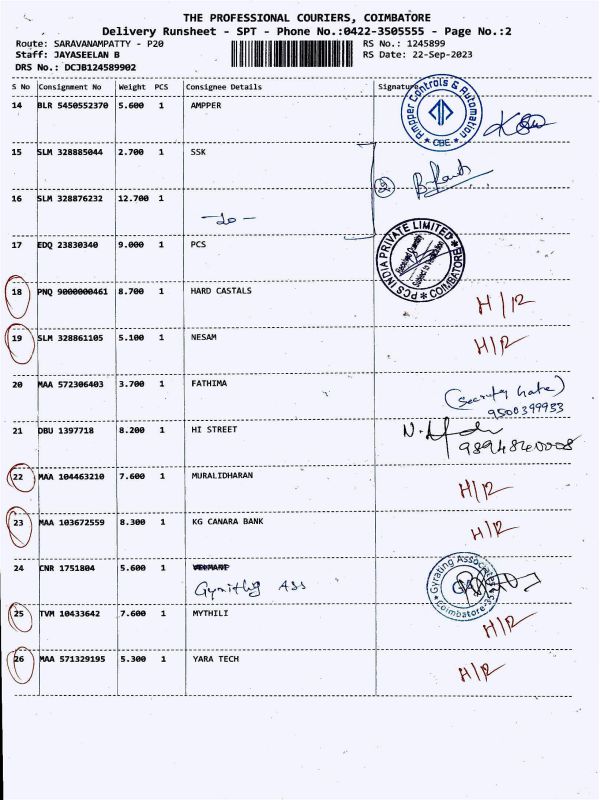 THE PROFESSIONAL COURIERS, COIMBATORE
Delivery Runsheet - SPT - Phone No.:0422-3505555 - Page No.:2
Route: SARAVANAMPATTY - P20 RS No.: 1245899
Staff: JAYASEELAN B RS Date: 22-Sep-2023
DRS No.: DCJB124589902
S No Consignment No Weight PCS Consignee Details Signature
14 BLR 5450552370 5.600 1 AMPPER
Ampper Controls & Automation * CBE *
15 SLM 328885044 2.700 1 SSK
16 SLM 328876232 12.700 1
-do-
17 EDQ 23830340 9.000 1 PCS
PCS INDIA PRIVATE LIMITED * COIMBATORE *
18 PNQ 9000000461 8.700 1 HARD CASTALS
H/R
19 SLM 328861105 5.100 1 NESAM
H/R
20 MAA 572306403 3.700 1 FATHIMA
(Security Gate)
9500399933
21 DBU 1397718 8.200 1 HI STREET
9894840008
22 MAA 104463210 7.600 1 MURALIDHARAN
H/R
23 MAA 103672559 8.300 1 KG CANARA BANK
H/R
24 CNR 1751804 5.600 1
Ass
Gyrating Associates * Coimbatore-35 *
25 TVM 10433642 7.600 1 MYTHILI
H/R
26 MAA 571329195 5.300 1 YARA TECH
H/R